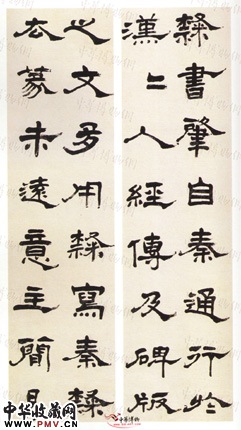 隸書肇自秦通行於
漢〻人經傳及碑版
之文多用隸寫秦隸
去篆未遠意主簡易
中华收藏网
WWW.PMV.CN